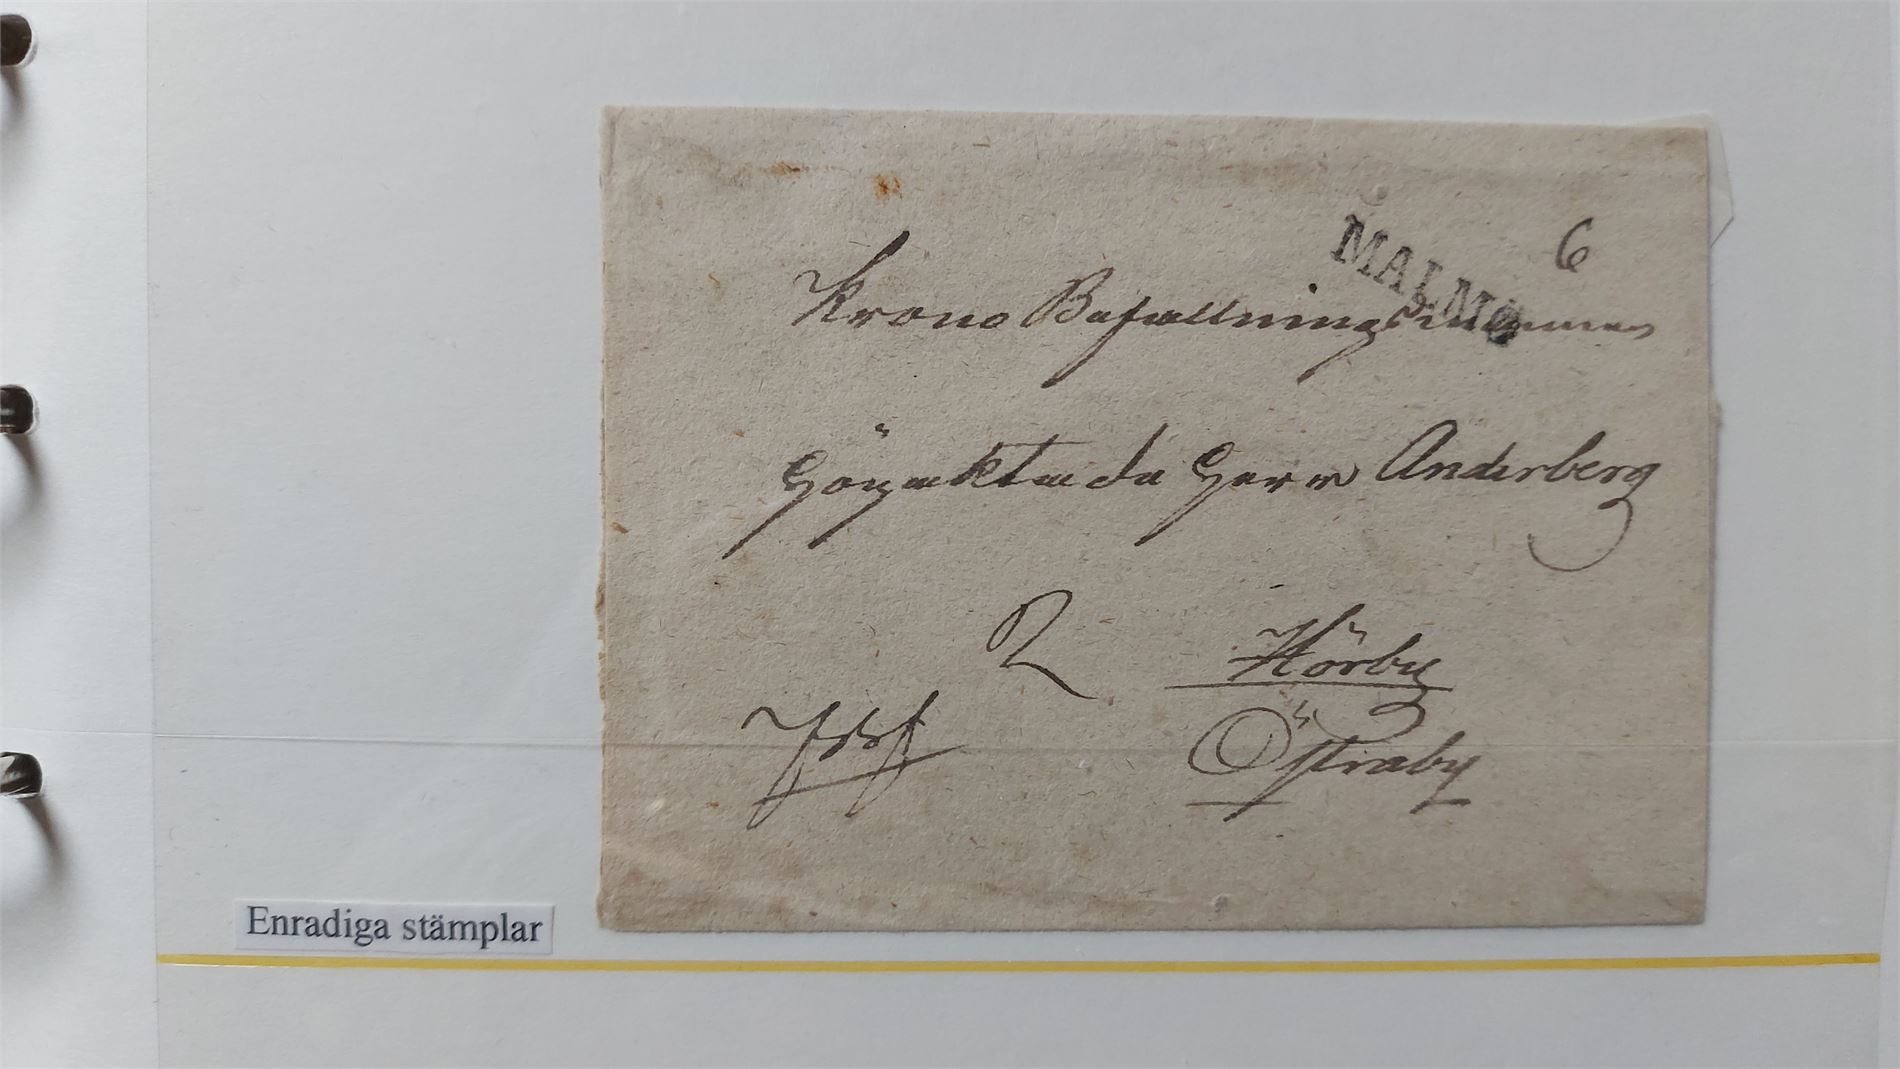 6
MALMÖ
Krono Befallningsmannen
Högaktade Herr Anderberg
2
Hörby
Östraby
Enradiga stämplar